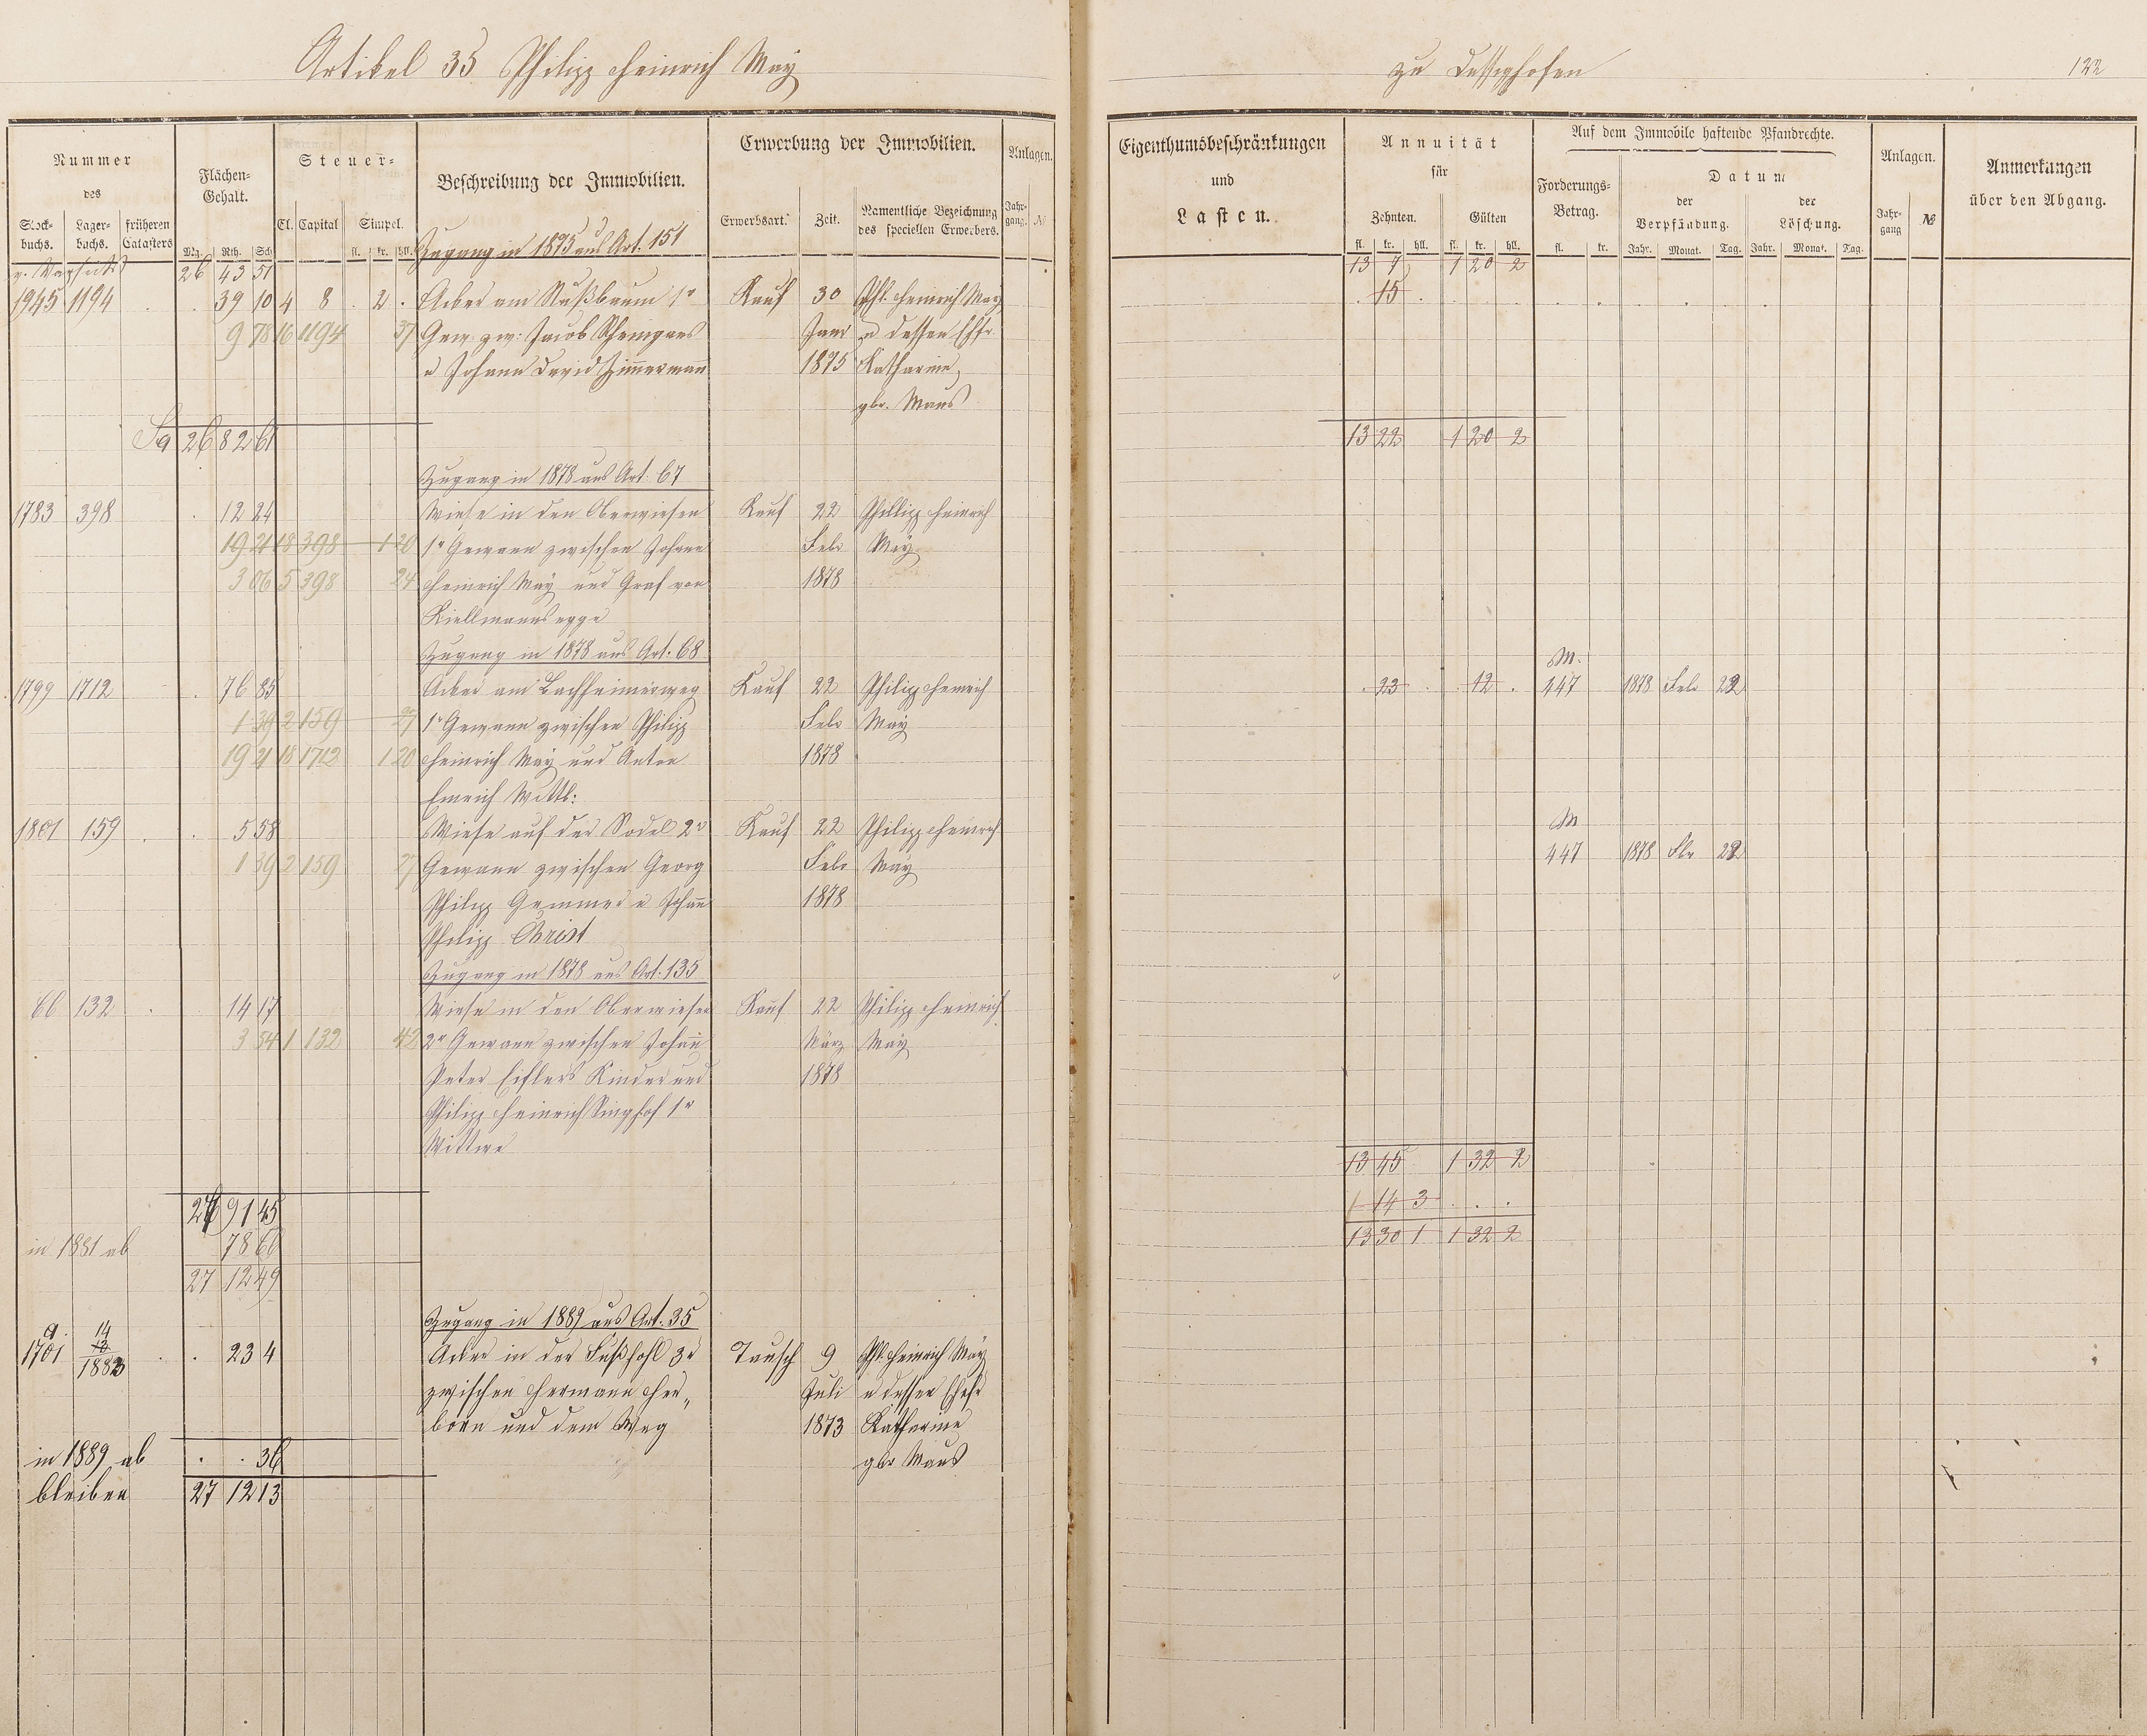 Artikel 35 Philipp Heinrich May
zu Dessighofen
122
Nummer des
Stock-buchs. Lager-buchs. früheren Catasters
Flächen-Gehalt.
Mg. Rth. Sch.
Steuer-
Cl. Capital Simpel.
fl. kr. hll.
Beschreibung der Immobilien.
Erwerbung der Immobilien.
Erwerbsart. Zeit. Namentliche Bezeichnung des speciellen Erwerbers.
Anlagen.
Jahr-gang. №
Eigenthumsbeschränkungen und Lasten.
Annuität für
Zehnten. Gülten
fl. kr. hll. fl. kr. hll.
Auf dem Immobile haftende Pfandrechte.
Forderungs-Betrag.
fl. kr.
Datum
der Verpfändung. der Löschung.
Jahr. Monat. Tag. Jahr. Monat. Tag.
Anlagen.
Jahr-gang №
Anmerkungen über den Abgang.
Zugang in 1875 aus Art. 151
26 43 51 13 7 1 20 2
1945 1194 39 10 4 8 . 2 . Acker am Nußbaum 1r Kauf 30 Phl. Heinrich May 15
9 78 16 1194 37 Gew. zw: Jacob Rheingans Janr u dessen Ehfr.
u Johann David Zimmermann 1875 Katharine
gbr. Maus
Sa 26 82 61 13 22 1 20 2
Zugang in 1878 aus Art. 67
1783 398 12 24 Wiese in den Oberwiesen Kauf 22 Phillipp Heinrich
19 21 18 398 1 20 1r Gewann zwischen Johann Febr May
3 06 5 398 24 Heinrich May und Graf von 1878
Kiellmannsegge
Zugang in 1878 aus Art. 68 M.
1799 1712 76 85 Acker am Bachheimerweg Kauf 22 Philipp Heinrich 23 12 447 1878 Febr 22
1 39 2 159 27 1r Gewann zwischen Philipp Febr May
19 21 18 1712 1 20 Heinrich May und Anton 1878
Emrich Wittb:
M
1801 159 5 58 Wiese auf der Sodel 2r Kauf 22 Philipp Heinrich
1 39 2 159 27 Gewann zwischen Georg Febr May 447 1878 Fbr 22
Philipp Gemmer u Johann 1878
Philipp Christ
Zugang in 1878 aus Art. 135
66 132 14 17 Wiese in den Oberwiesen Kauf 22 Philipp Heinrich
3 54 1 132 42 2r Gewann zwischen Johann März May
Peter Eiflers Kinder und 1878
Philipp Heinrich Singhof 1r
Wittwe
13 45 1 32 2
27 91 45 1 14 3 . . .
in 1881 ab 78 66 13 30 1 1 32 2
27 12 49
Zugang in 1889 aus Art. 35
a 14
1701 13 1883 23 4 Acker in der Fußhohl 3r Tausch 9 Phl. Heinrich May
zwischen Hermann Her- Juli u dessen Ehefr
born und dem Weg 1873 Katharine
in 1889 ab . . 36 gbr Maus
bleiben 27 12 13